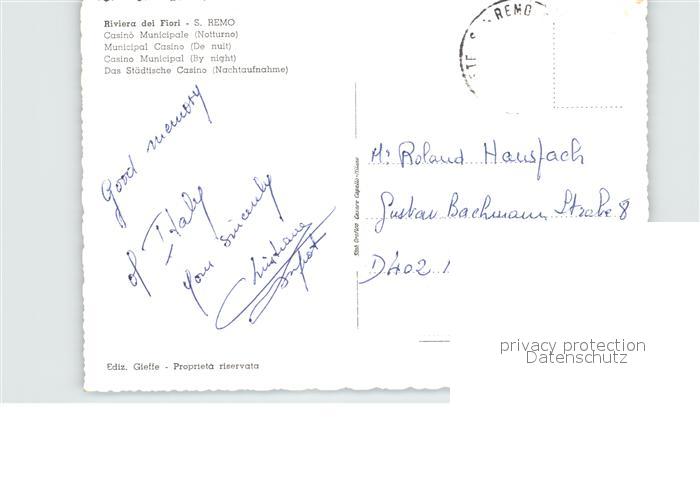 Riviera dei Fiori - S. REMO
Casinò Municipale (Notturno)
Municipal Casino (De nuit)
Casino Municipal (By night)
Das Städtische Casino (Nachtaufnahme)
S. REMO
Good memory
of Italy
Your sincerely
Christiane
Mr Roland Hausfach
Gustav Bachmann Straße 8
D402
Ediz. Gieffe - Proprietà riservata
privacy protection
Datenschutz